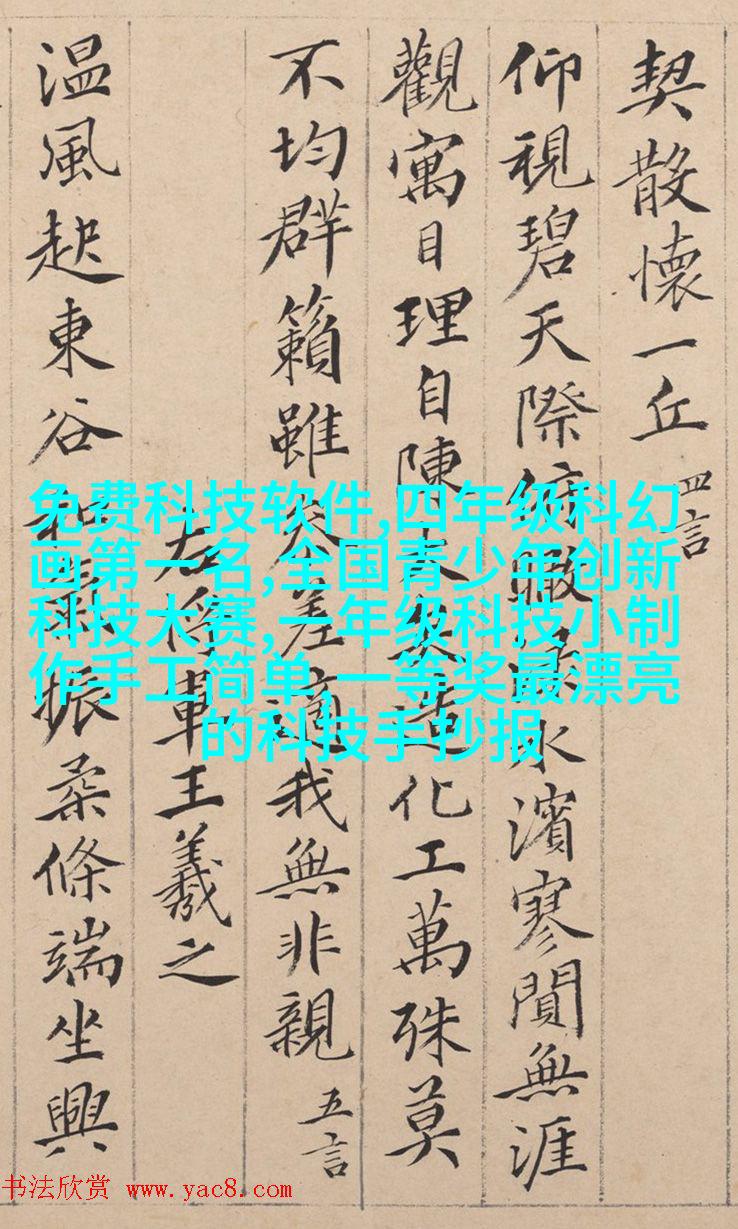 契散懷一丘 四言
仰視碧天際俯瞰淥水濱寥閴無涯
觀寓目理自陳大矣造化工萬殊莫
不均群籟雖參差適我無非親 五言
右将軍王羲之
温風起東谷和氣振柔條端坐興
免费科技软件,四年级科幻
画第一名,全国青少年创新
科技大赛,一年级科技小制
作手工简单,一等奖最漂亮
的科技手抄报
书法欣赏 www.yac8.com